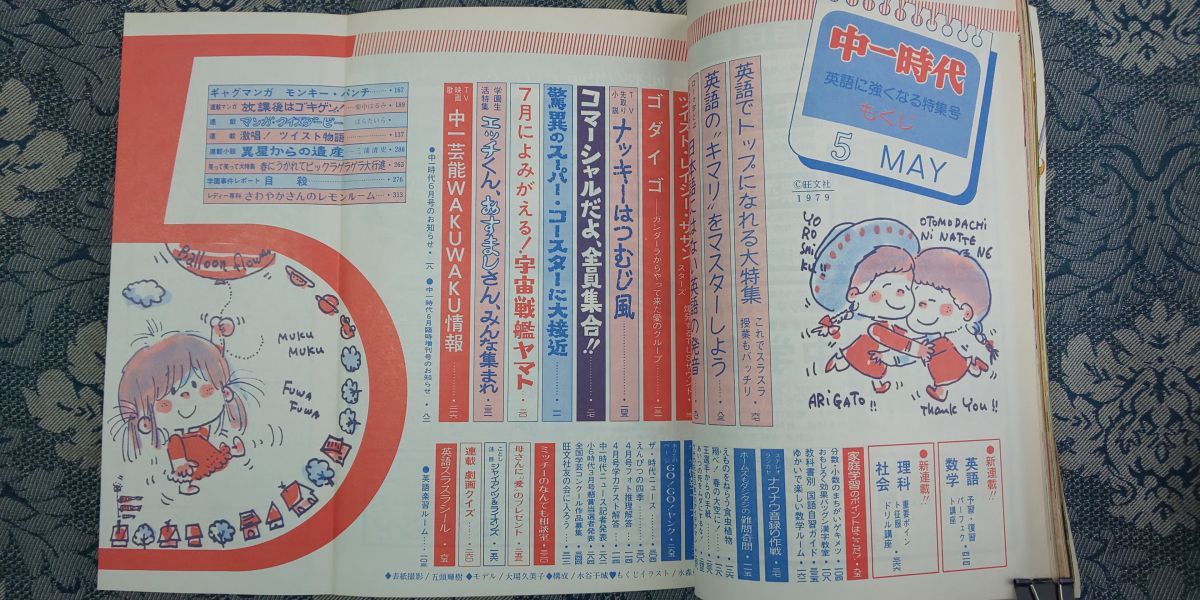 中一時代
英語に強くなる特集号
もくじ
5 MAY
©旺文社
1979
YOROSHIKU
OTOMODACHI
NI NATTE
NE
ARIGATO!!
Thank You!!
英語でトップになれる大特集
これでスラスラ
授業もバッチリ
英語の"キマリ"をマスターしよう
日本語にはない英語の発音
ツイスト・レイジー・サザン
ゴダイゴ
ガンダーラからやって来た愛のグループ
TV先取り小説 ナッキーはつむじ風
コマーシャルだよ、全員集合!!
驚異のスーパー・コースターに大接近
7月によみがえる!宇宙戦艦ヤマト
学園生活特集 エッチくん、おすましさん、みんな集まれ
TV映画歌 中一芸能WAKUWAKU情報
●中一時代6月号のお知らせ
●中一時代6月臨時増刊号のお知らせ
ギャグマンガ モンキー・パンチ 167
連載マンガ 放課後はゴキゲン! 189
連載 マンガ・クイズダービー はらたいら
連載 激唱!ツイスト物語 137
連載小説 異星からの遺産 286
笑って笑って大特集 春にうかれてビックラゲラゲラ大行進 263
学園事件レポート 自殺 276
レディー専科 さわやかさんのレモンルーム 313
5
Balloon flower
MUKU
MUKU
FUWA
FUWA
●新連載!!
英語
数学
予習・復習
パーフェクト講座
●新連載!!
理科
社会
重要ポイント征服
ドリル講座
家庭学習のポイントはここだ!
分数・小数のまちがいゲキメツ
おもしろく効果バツグン漢字教室
教科書別・国語自習ガイド
ゆかいで楽しい数学ルーム
ナウナウ音録の作戦
ホームズもダンゼンの難問奇問
えものをねらう食虫植物
翔べ!春の大空に
王選手からの手紙
GO!GO!ヤング
ザ・時代ニュース
えんぴつの四季
4月号フォト推理解答
4月号学力テスト解答
中一時代ニュース記者発表
小6時代3月号懸賞当選者発表
全国学芸コンクール作品募集
旺文社友の会に入ろう
ミッチーのなんでも相談室
母さんに"愛"のプレゼント
ことし注目 ジャイアンツ&ライオンズ
連載 劇画クイズ
英語スラスラシール
●英語楽習ルーム
◆表紙撮影/五頭輝樹◆モデル/大場久美子◆構成/水谷千城♥もくじイラスト/水森